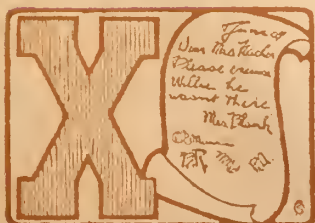 X
June 9
Dear Miss Teacher
Please excuse
Willie he
wasnt there
Mrs Blank